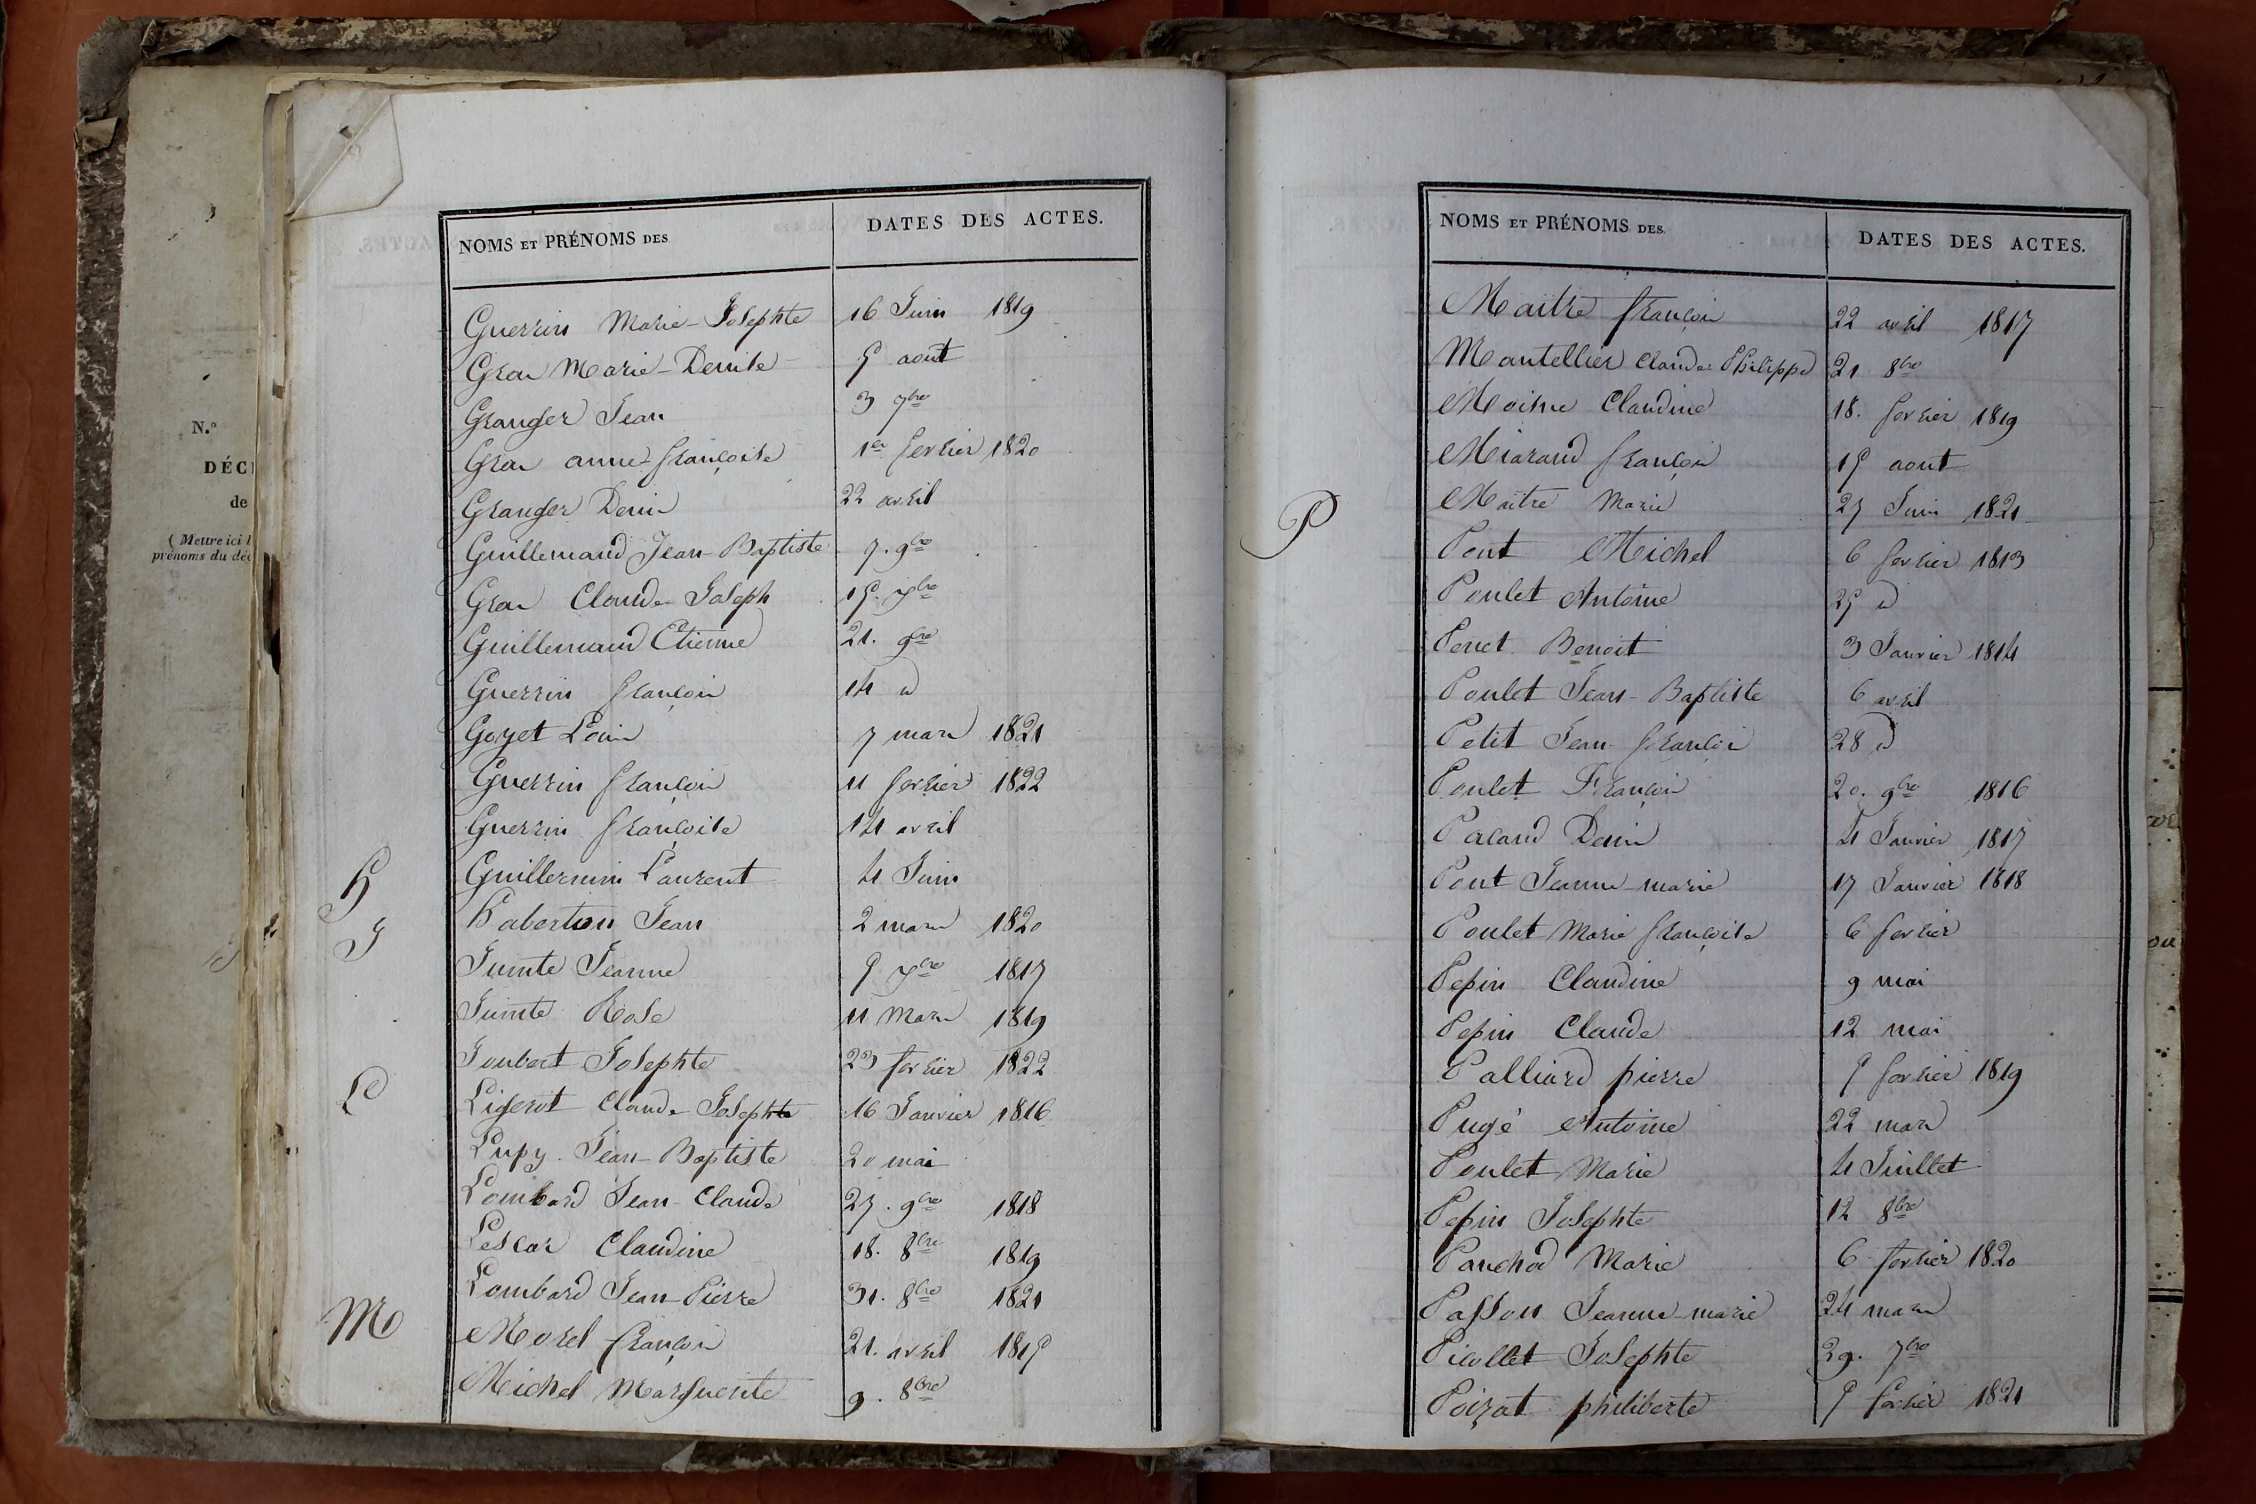 N.o
DÉC
de
(Mettre ici l
prénoms du déc
NOMS ET PRÉNOMS DES
DATES DES ACTES.
Guerrin Marie-Josephte 16 Juin 1819
Gras Marie-Denise 5 aout
Granger Jean 3 7bre
Gras anne françoise 1er fevrier 1820
Granger Denis 22 avril
Guillemaud Jean-Baptiste 7. 9bre
Gras Claude Joseph 15. 7bre
Guillemaud Etienne 21. 9bre
Guerrin françois 14 d
Goyet Louis 7 mars 1821
Guerrin françois 11 fevrier 1822
Guerrin françoise 14 avril
Guillermin Laurent 4 Juin
H
Haberton Jean 2 mars 1820
J
Jumte Jeanne 5 7bre 1817
Jumte Rose 11 Mars 1819
Joubert Josephte 23 fevrier 1822
L
Ligerot Claude Josephte 16 Janvier 1816
Lupy Jean-Baptiste 20 mai
Lombard Jean-Claude 27. 9bre 1818
Lescar Claudine 18. 8bre 1819
Lombard Jean-Pierre 31. 8bre 1821
M
Morel françois 21. avril 1815
Michel Marguerite 9. 8bre
NOMS ET PRÉNOMS DES
DATES DES ACTES.
Maitre françois 22 avril 1817
Mantellier Claude Philippe 21 8bre
Moine Claudine 18. fevrier 1819
Miarand françois 15 aout
Maitre Marie 27 Juin 1821
P
Pont Michel 6 fevrier 1813
Poulet Antoine 25 d
Penet Benoit 3 Janvier 1814
Poulet Jean-Baptiste 6 avril
Petit Jean françois 28 d
Poulet François 20. 9bre 1816
Pacaud Denis 4 Janvier 1817
Pont Jeanne-marie 17 Janvier 1818
Poulet Marie françoise 6 fevrier
Pepin Claudine 9 mai
Pepin Claude 12 mai
Palliard pierre 5 fevrier 1819
Pugé Antoine 22 mars
Poulet Marie 4 Juillet
Pepin Josephte 12 8bre
Panchod Marie 6 fevrier 1820
Passon Jeanne-marie 24 mars
Picollet Josephte 29. 7bre
Poizat philiberte 5 fevrier 1821